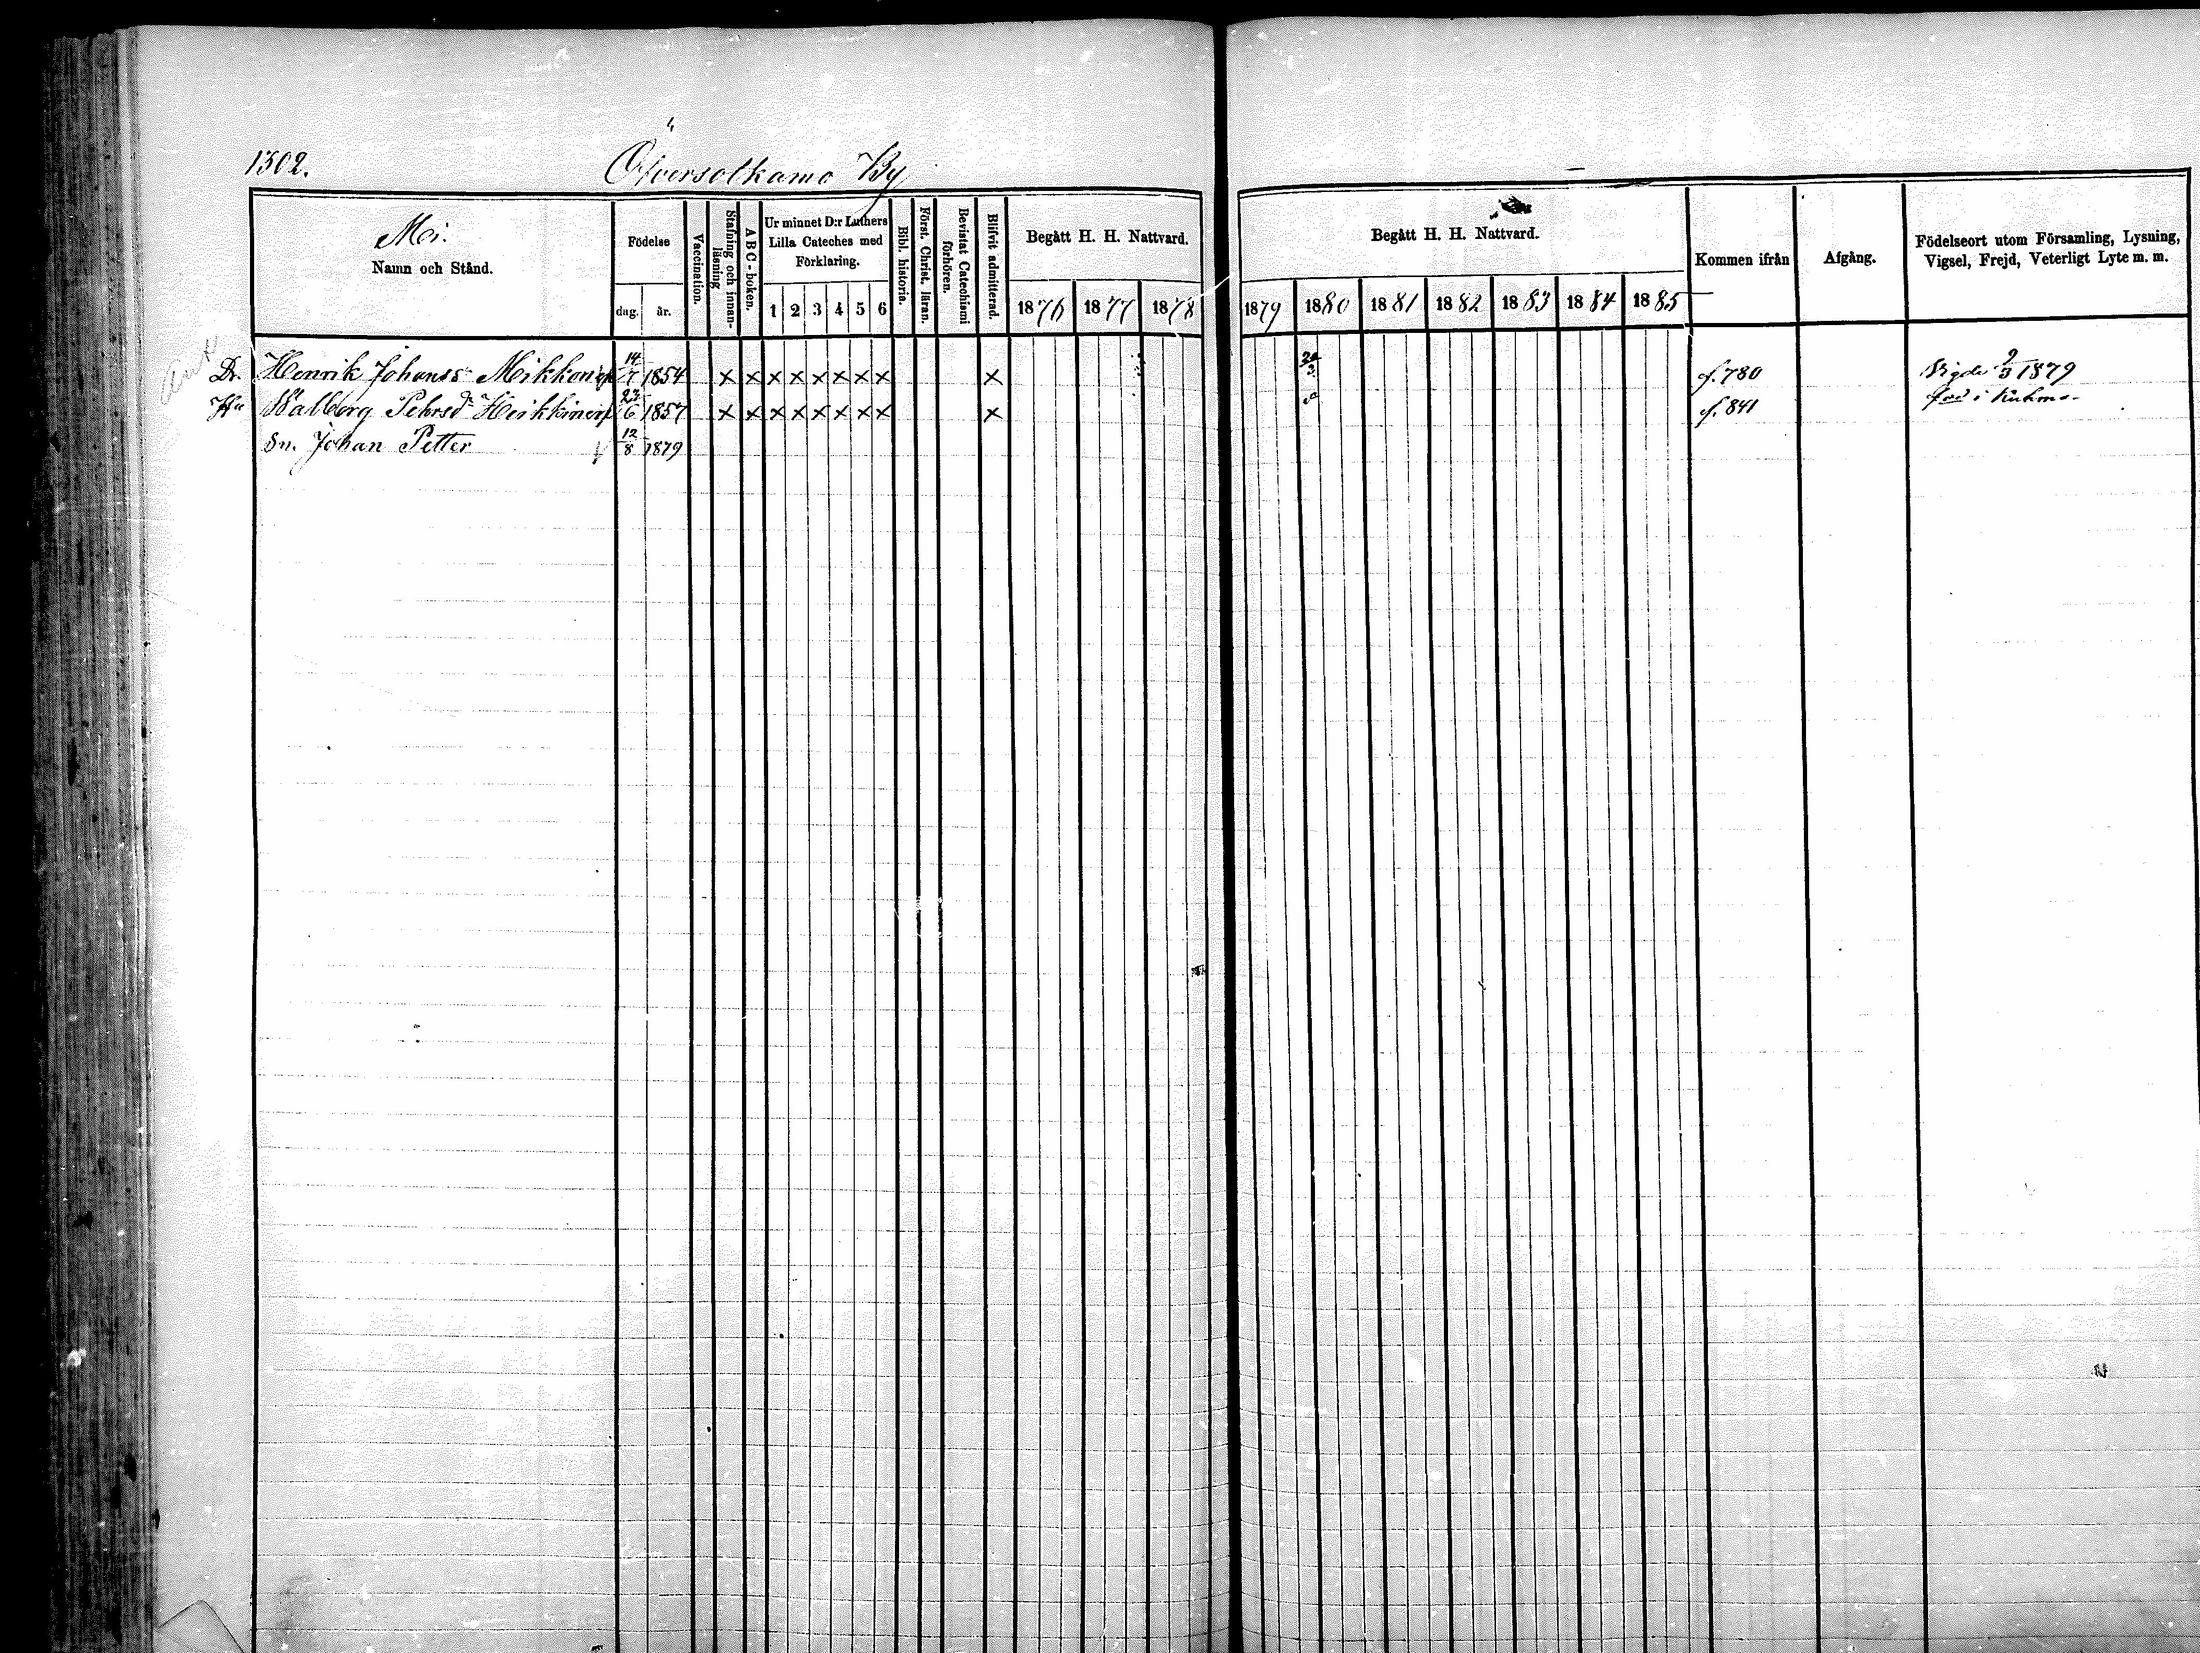 1302. Öfversotkamo By
Moi.
Namn och Stånd.
Födelse
dag. år.
Vaccination.
Stafning och innanläsning
ABC-boken.
Ur minnet D:r Luthers Lilla Cateches med Förklaring.
1 2 3 4 5 6
Bibl. historia.
Först. Christ. läran.
Bevistat Catechismi förhören.
Blifvit admitterad.
Begått H. H. Nattvard.
1876 1877 1878
Begått H. H. Nattvard.
1879 1880 1881 1882 1883 1884 1885
Kommen ifrån
Afgång.
Födelseort utom Församling, Lysning, Vigsel, Frejd, Veterligt Lyte m. m.
Dr. Henrik Johanss Mikkonen 14/7 1854 × × × × × × × × × f. 780 Vigde 9/3 1879
Hu Walborg Pehrsdr Heikkinen 23/6 1857 × × × × × × × × × f. 841 född i Kuhmo
Sn. Johan Petter 12/8 1879